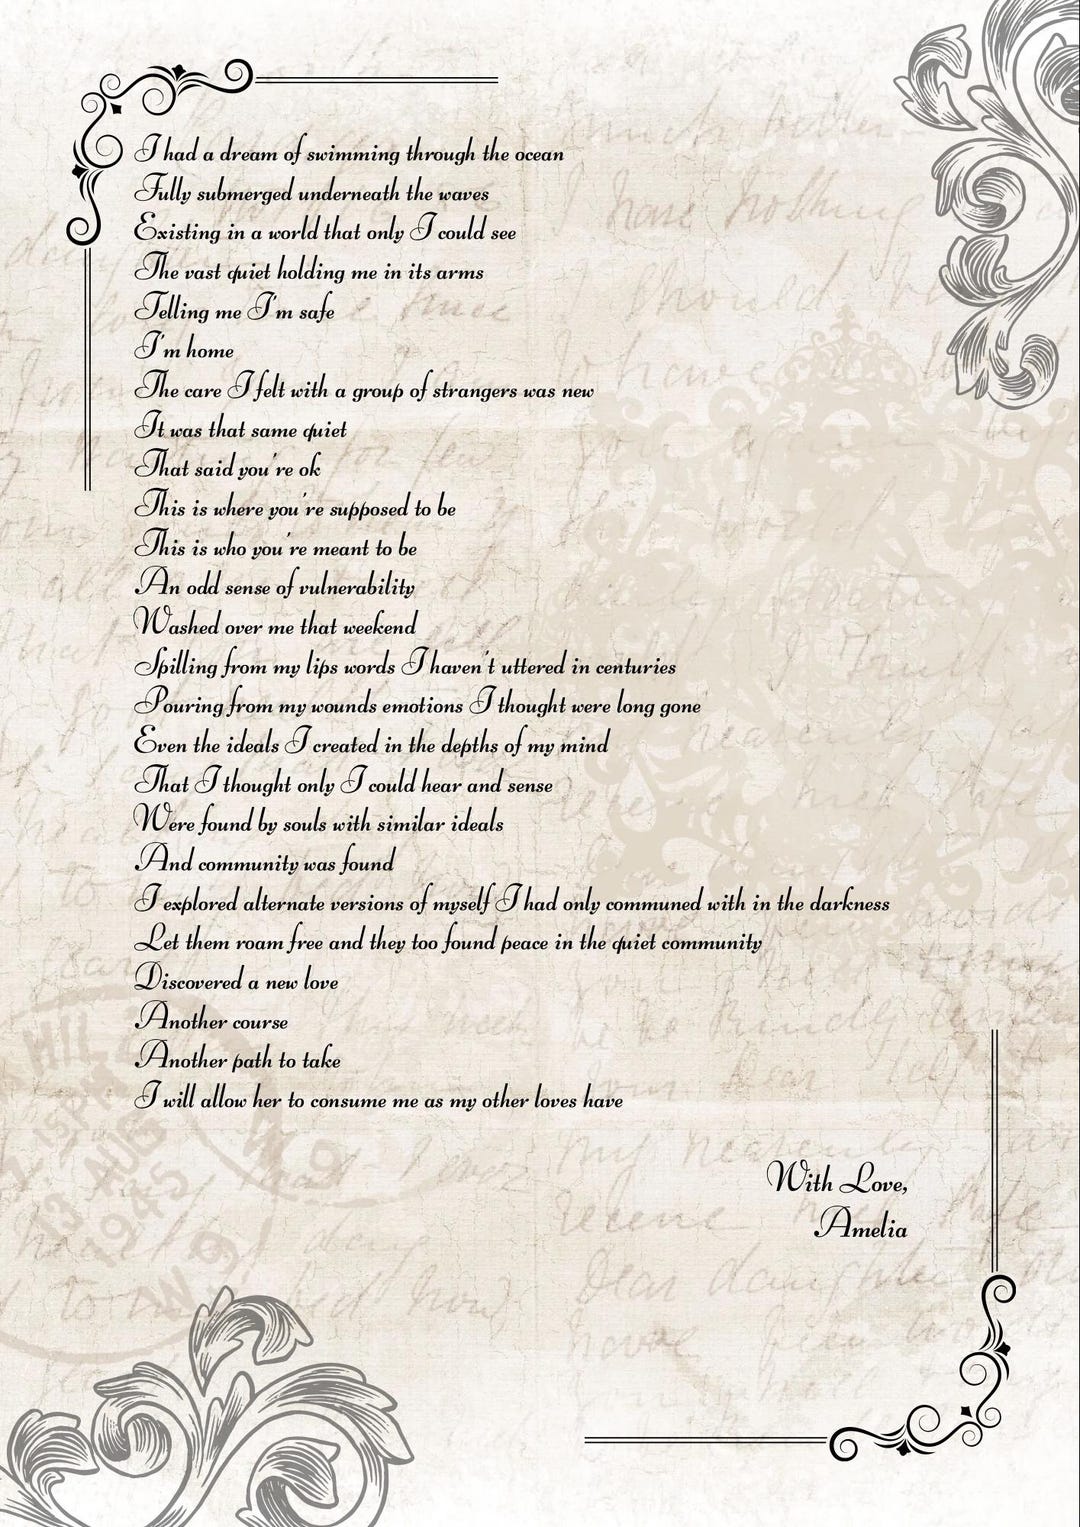 I had a dream of swimming through the ocean
Fully submerged underneath the waves
Existing in a world that only I could see
The vast quiet holding me in its arms
Telling me I'm safe
I'm home
The care I felt with a group of strangers was new
It was that same quiet
That said you're ok
This is where you're supposed to be
This is who you're meant to be
An odd sense of vulnerability
Washed over me that weekend
Spilling from my lips words I haven't uttered in centuries
Pouring from my wounds emotions I thought were long gone
Even the ideals I created in the depths of my mind
That I thought only I could hear and sense
Were found by souls with similar ideals
And community was found
I explored alternate versions of myself I had only communed with in the darkness
Let them roam free and they too found peace in the quiet community
Discovered a new love
Another course
Another path to take
I will allow her to consume me as my other loves have
With Love,
Amelia
13 AUG
1945
W 9